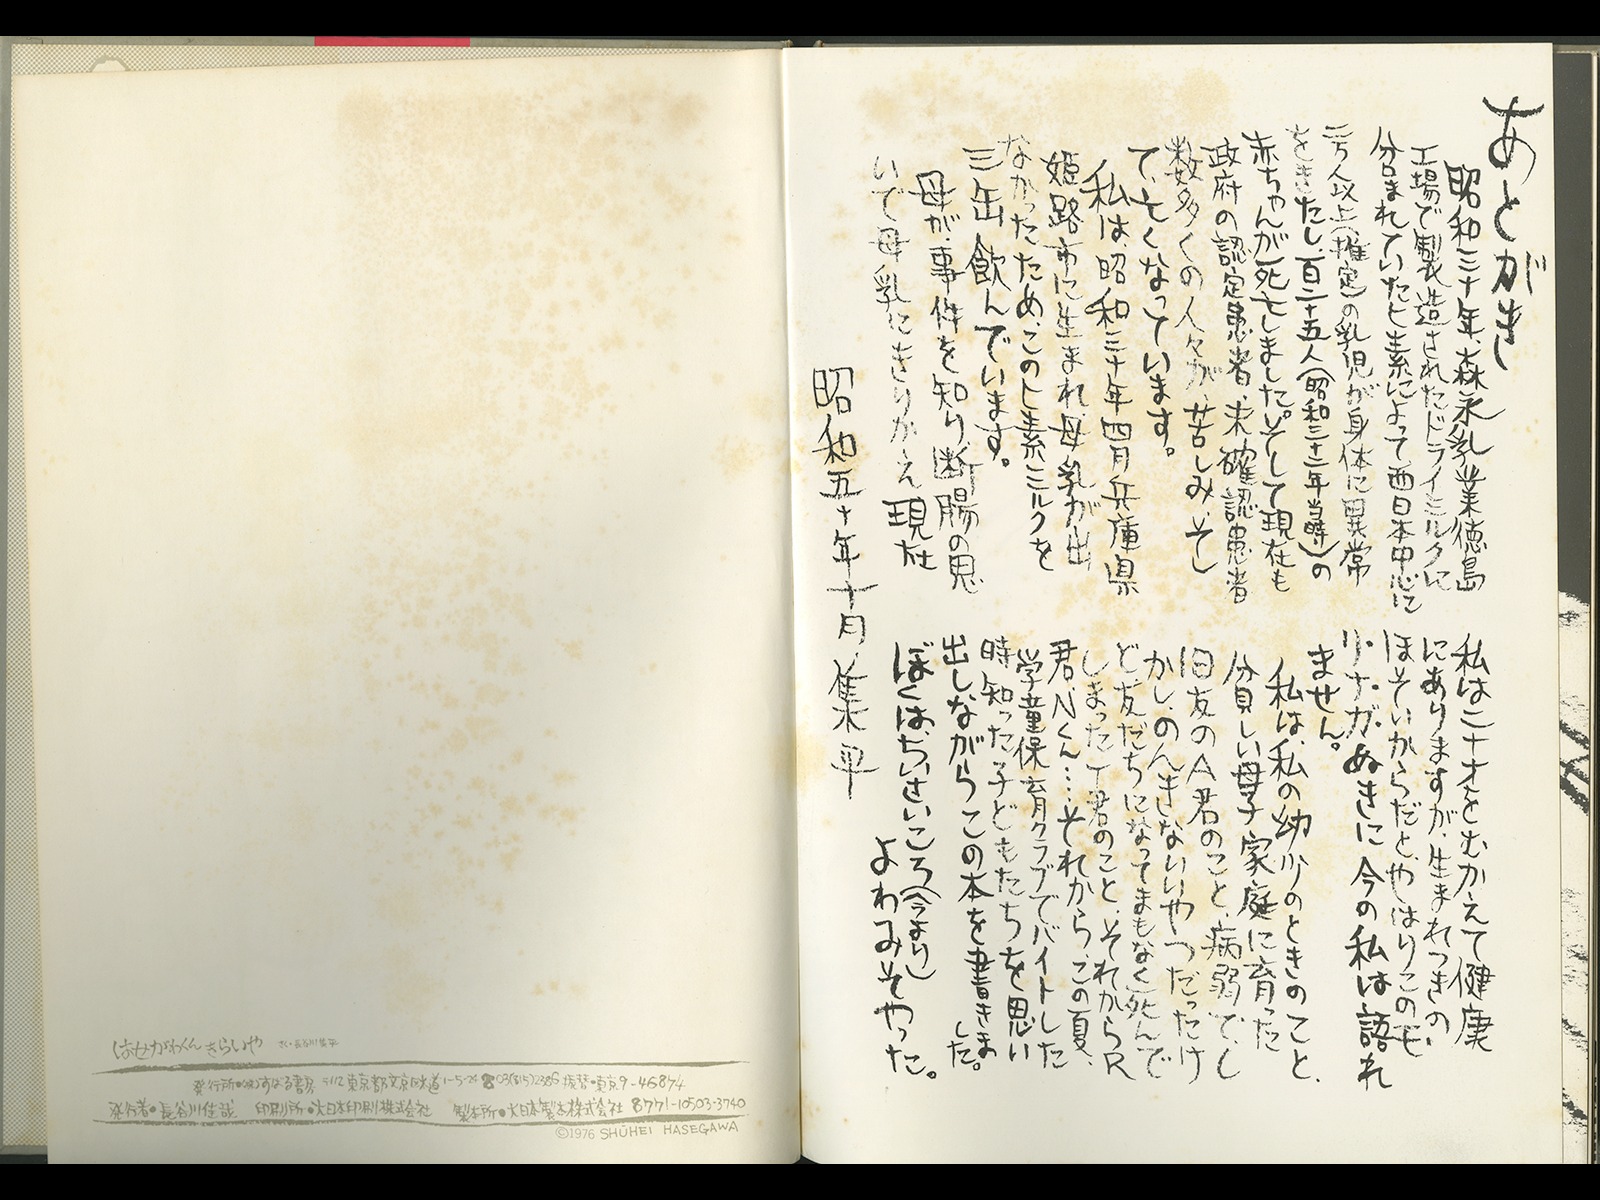 あとがき
昭和三十年、森永乳業徳島
工場で製造されたドライミルクに
含まれていたヒ素によって西日本中心に
二万人以上(推定)の乳児が身体に異常
をきたし、百二十五人(昭和三十二年当時)の
赤ちゃんが死亡しました。そして現在も
政府の認定患者、未確認患者
数多くの人々が、苦しみ、そし
て、亡くなっています。
私は、昭和三十年四月兵庫県
姫路市に生まれ、母乳が出
なかったため、このヒ素ミルクを
三缶飲んでいます。
母が、事件を知り断腸の思
いで母乳にきりかえ現在
私は二十才をむかえて健康
にありますが、生まれつきの、
ほそいからだと、やはりこのモ
リ・ナ・ガぬきに今の私は語れ
ません。
私は、私の幼少のときのこと、
分貝しい母子家庭に育った
旧友のA君のこと、病弱で、し
かし、のんきないいやつだったけ
ど、友だちになってまもなく死んで
しまったT君のこと、それからR
君、Nくん…それから、この夏、
学童保育クラブでバイトした
時知った子どもたちを思い
出しながらこの本を書きま
した。
ぼくは、ちいさいころ(今より)
よわみそやった。
昭和五十年十月、集平
はせがわくんきらいや さく・長谷川集平
発行所●(株)すばる書房 〒112 東京都文京区水道1-5-26 ☎03(815)2386 振替●東京9-46874
発行者●長谷川佳哉 印刷所●大日本印刷株式会社 製本所●大日本製本株式会社 8771-10503-3740
©1976 SHŪHEI HASEGAWA